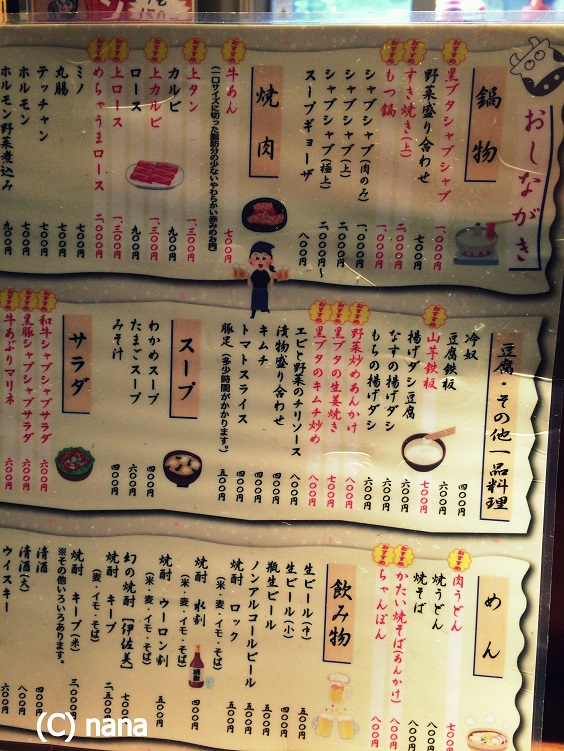 150
おしながき
鍋物
おすすめ 黒ブタシャブシャブ 一、〇〇〇円
野菜盛り合わせ 七〇〇円
おすすめ すき焼き(上) 二、〇〇〇円
おすすめ もつ鍋 一、〇〇〇円
シャブシャブ(肉のみ) 一、〇〇〇円
シャブシャブ(上) 二、〇〇〇円
シャブシャブ(極上) 二、〇〇〇円〜
スープギョーザ 八〇〇円
焼肉
おすすめ 牛あん 七〇〇円
(一口サイズに切った脂肪分の少ないやわらかい赤みのお肉)
おすすめ 上タン 一、三〇〇円
カルビ 九〇〇円
おすすめ 上カルビ 一、三〇〇円
ロース 九〇〇円
おすすめ 上ロース 一、三〇〇円
おすすめ めちゃうまロース 二、〇〇〇円
ミノ 七〇〇円
丸腸 七〇〇円
テッチャン 七〇〇円
ホルモン 七〇〇円
ホルモン野菜煮込み 九〇〇円
豆腐・その他一品料理
冷奴 四〇〇円
豆腐鉄板 六〇〇円
おすすめ 山芋鉄板 七〇〇円
揚げダシ豆腐 六〇〇円
なすの揚げダシ 六〇〇円
もちの揚げダシ 六〇〇円
おすすめ 野菜炒めあんかけ 八〇〇円
おすすめ 黒ブタの生姜焼き 七〇〇円
おすすめ 黒ブタのキムチ炒め 八〇〇円
エビと野菜のチリソース 八〇〇円
漬物盛り合わせ 四〇〇円
キムチ 四〇〇円
トマトスライス 四〇〇円
豚足(多少時間がかかります。) 五〇〇円
スープ
わかめスープ 四〇〇円
たまごスープ 六〇〇円
みそ汁 四〇〇円
サラダ
おすすめ 和牛シャブシャブサラダ 六〇〇円
おすすめ 黒豚シャブシャブサラダ 六〇〇円
おすすめ 牛あぶりマリネ 六〇〇円
めん
おすすめ 肉うどん 七〇〇円
焼うどん 八〇〇円
焼そば 八〇〇円
おすすめ かたい焼そば(あんかけ) 八〇〇円
おすすめ ちゃんぽん 八〇〇円
飲み物
生ビール(中) 五〇〇円
生ビール(小) 四〇〇円
瓶生ビール 五〇〇円
ノンアルコールビール 五〇〇円
焼酎 ロック 五〇〇円
(米・麦・イモ・そば)
焼酎 水割 五〇〇円
(米・麦・イモ・そば)
焼酎 ウーロン割 五〇〇円
(米・麦・イモ・そば)
幻の焼酎(伊佐美) 七〇〇円
焼酎 キープ 二、五〇〇円
(麦・イモ・そば)
焼酎 キープ(米) 三、〇〇〇円
※その他いろいろあります。
清酒 四〇〇円
清酒(大) 八〇〇円
ウイスキー 六〇〇円
(C) nana